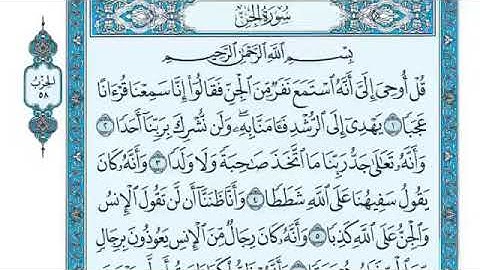 سُورَةُ الجِنِّ
بِسْمِ ٱللَّهِ ٱلرَّحْمَٰنِ ٱلرَّحِيمِ
قُلْ أُوحِىَ إِلَىَّ أَنَّهُ ٱسْتَمَعَ نَفَرٌ مِّنَ ٱلْجِنِّ فَقَالُوٓا۟ إِنَّا سَمِعْنَا قُرْءَانًا
عَجَبًا ١ يَهْدِىٓ إِلَى ٱلرُّشْدِ فَـَٔامَنَّا بِهِۦ وَلَن نُّشْرِكَ بِرَبِّنَآ أَحَدًا ٢
وَأَنَّهُۥ تَعَٰلَىٰ جَدُّ رَبِّنَا مَا ٱتَّخَذَ صَٰحِبَةً وَلَا وَلَدًا ٣ وَأَنَّهُۥ كَانَ
يَقُولُ سَفِيهُنَا عَلَى ٱللَّهِ شَطَطًا ٤ وَأَنَّا ظَنَنَّآ أَن لَّن تَقُولَ ٱلْإِنسُ
وَٱلْجِنُّ عَلَى ٱللَّهِ كَذِبًا ٥ وَأَنَّهُۥ كَانَ رِجَالٌ مِّنَ ٱلْإِنسِ يَعُوذُونَ بِرِجَالٍ
الحِزْب
٥٨